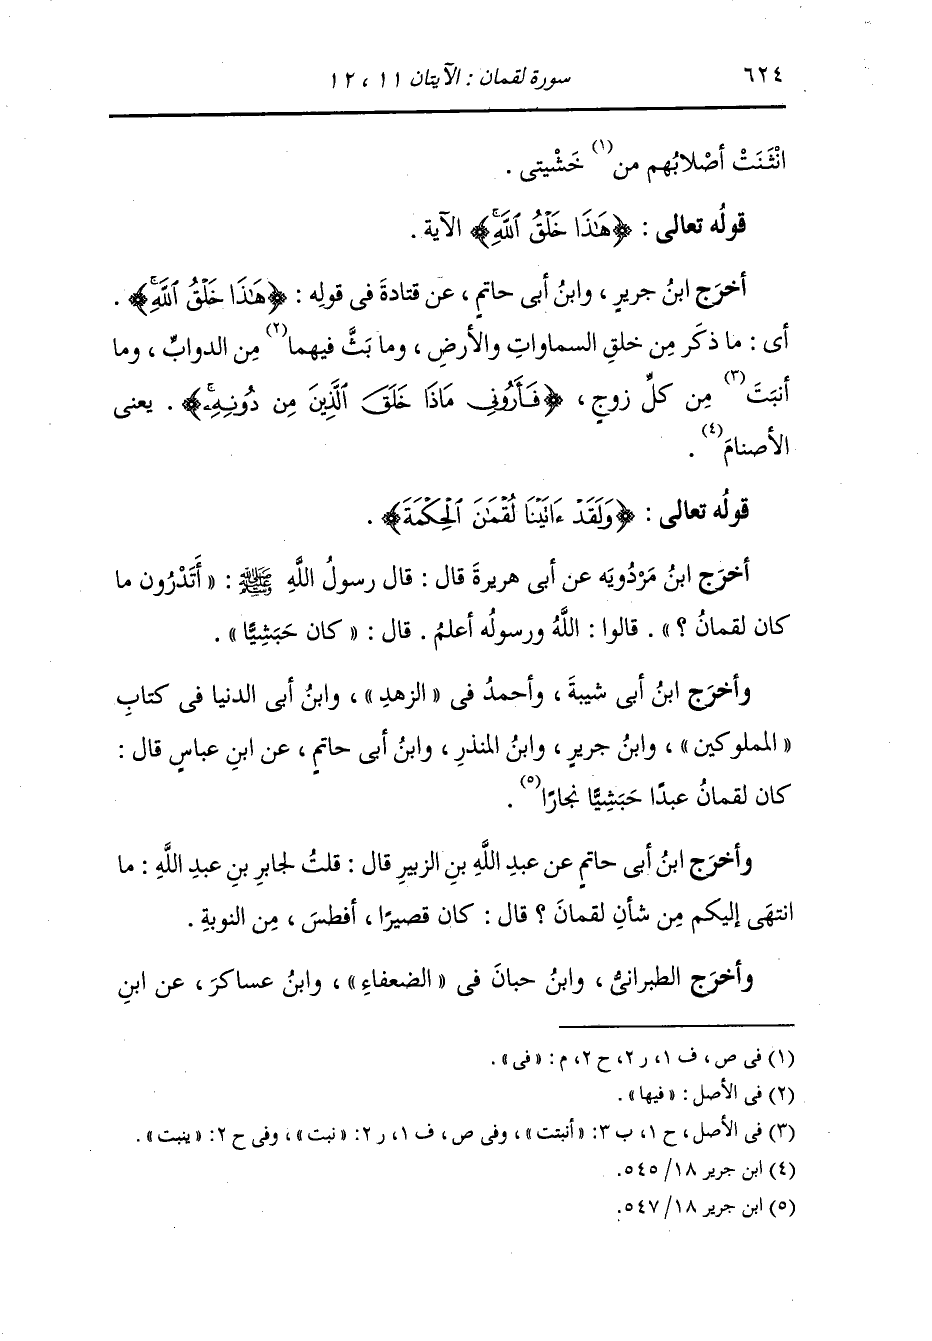 ٦٢٤ سورة لقمان : الآيتان ١١ ، ١٢
انْثَنَتْ أصْلابُهم من(١) خَشْيتى .
قولُه تعالى : ﴿هَٰذَا خَلْقُ ٱللَّهِ﴾ الآية .
أخرَج ابنُ جريرٍ ، وابنُ أبى حاتمٍ ، عن قتادةَ فى قولِه : ﴿هَٰذَا خَلْقُ ٱللَّهِ﴾ .
أى : ما ذكَر مِن خلقِ السماواتِ والأرضِ ، وما بَثَّ فيهما(٢) مِن الدوابِّ ، وما
أنبَتَ(٣) مِن كلِّ زوجٍ ، ﴿فَأَرُونِى مَاذَا خَلَقَ ٱلَّذِينَ مِن دُونِهِۦۚ﴾ . يعنى
الأصنامَ(٤) .
قولُه تعالى : ﴿وَلَقَدْ ءَاتَيْنَا لُقْمَٰنَ ٱلْحِكْمَةَ﴾ .
أخرَج ابنُ مَرْدُويَه عن أبى هريرةَ قال : قال رسولُ اللَّهِ ﷺ : « أَتَدْرُون ما
كان لقمانُ ؟ » . قالوا : اللَّهُ ورسولُه أعلمُ . قال : « كان حَبَشِيًّا » .
وأخرَج ابنُ أبى شيبةَ ، وأحمدُ فى « الزهدِ » ، وابنُ أبى الدنيا فى كتابِ
« المملوكين » ، وابنُ جريرٍ ، وابنُ المنذرِ ، وابنُ أبى حاتمٍ ، عن ابنِ عباسٍ قال :
كان لقمانُ عبدًا حَبَشِيًّا نجارًا(٥) .
وأخرَج ابنُ أبى حاتمٍ عن عبدِ اللَّهِ بنِ الزبيرِ قال : قلتُ لجابرِ بنِ عبدِ اللَّهِ : ما
انتهَى إليكم مِن شأنِ لقمانَ ؟ قال : كان قصيرًا ، أفطسَ ، مِن النوبةِ .
وأخرَج الطبرانىُّ ، وابنُ حبانَ فى « الضعفاءِ » ، وابنُ عساكرَ ، عن ابنِ
(١) فى ص ، ف ١ ، ر ٢ ، ح ٢ ، م : « فى » .
(٢) فى الأصل : « فيها » .
(٣) فى الأصل ، ح ١ ، ب ٣ : « أنبتت » ، وفى ص ، ف ١ ، ر ٢ : « نبت » ، وفى ح ٢ : « ينبت » .
(٤) ابن جرير ١٨/ ٥٤٥.
(٥) ابن جرير ١٨/ ٥٤٧.